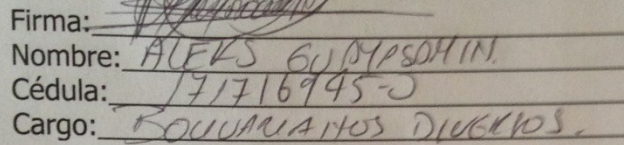 Firma:
Nombre: ALEKS GUAYPSAMIN.
Cédula: 171716945-0
Cargo: BOLIVARIANOS DIVERSOS.